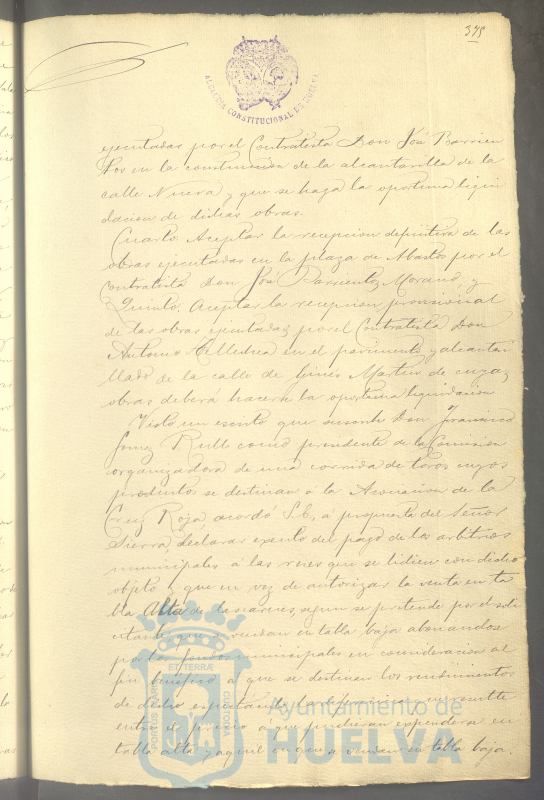 375
ALCALDIA CONSTITUCIONAL DE HUELVA
ejecutadas por el Contratista Don José Barrien
tos en la construccion de la alcantarilla de la
calle Nueva y que se haga la oportuna liqui
dacion de dichas obras.
Cuarto. Aceptar la recepcion definitiva de las
obras ejecutadas en la plaza de por el
Contratista Don José Barrientos Moreno y
Quinto. Aceptar la recepcion provisional
de las obras ejecutadas por el Contratista Don
Antonio en el pavimento y alcanta
rillado de la calle de Ginés Martin de cuyas
obras deberá hacerse la oportuna liquidacion
Visto un escrito que suscribe Don Francisco
Gomez Rull como presidente de la Comision
organizadora de una corrida de toros cuyos
productos se destinan á la Asociacion de la
Cruz Roja acordó S.E, á propuesta del Señor
Sierra, declarar exento del pago de los arbitrios
municipales á las reses que se lidien con dicho
objeto y que en vez de autorizar la venta en ta
bla Alta de las carnes, segun se pretende por el soli
citante, que se vendan en tabla baja abonandose
por los fondos municipales en consideracion al
fin benéfico á que se destinan los rendimientos
de dicho espectáculo, la diferencia que resulte
entre el precio á que pudieran expenderse en
tabla alta y aquel en que se vendan en tabla baja.
PORTUS MARIS
ET TERRÆ
CUSTODIA
Ayuntamiento de
HUELVA